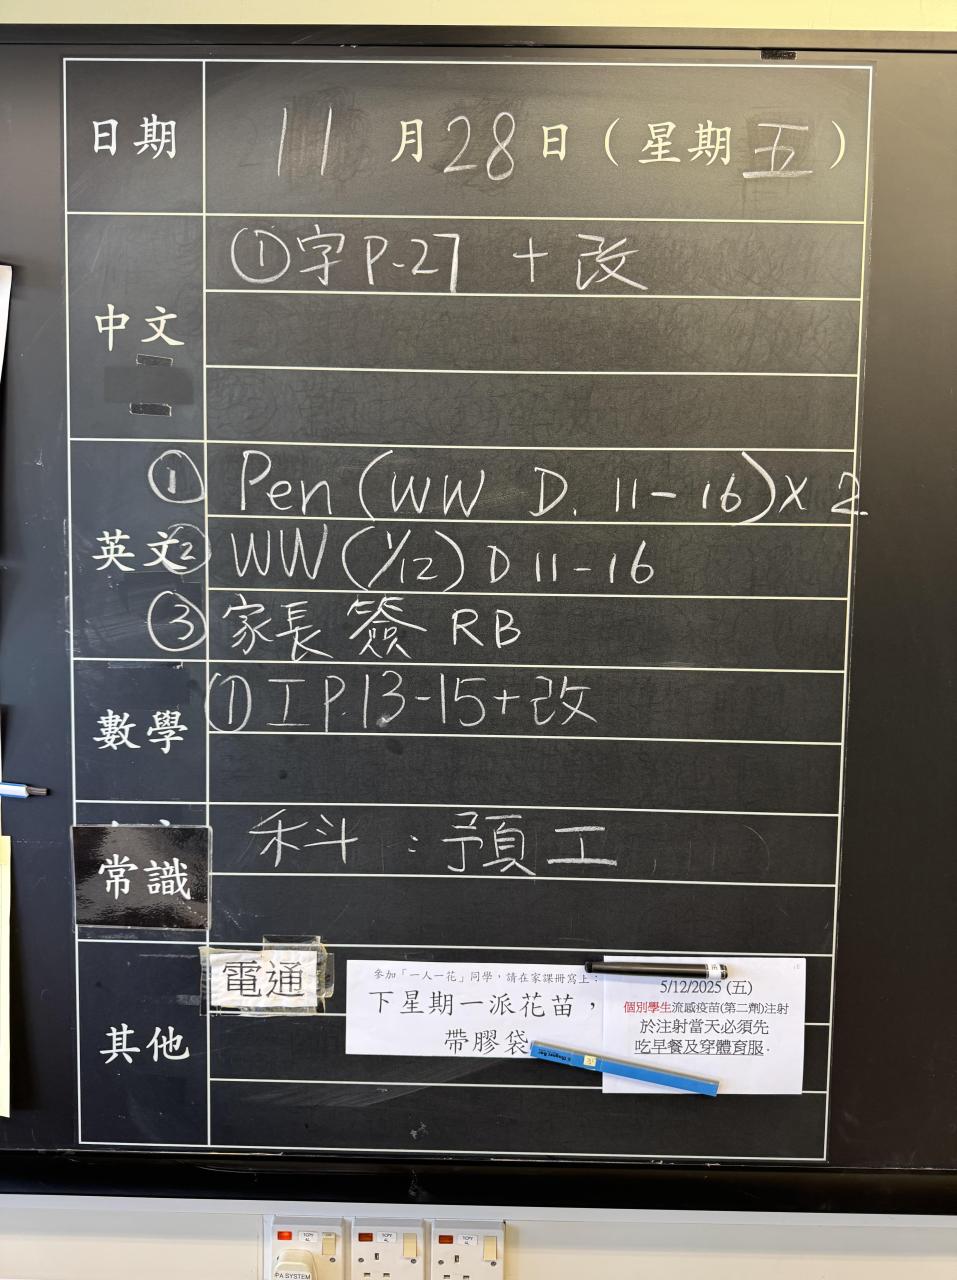 日期 11 月 28 日 (星期 五)
中文
①字 P.27 + 改
英文
① Pen (WW D. 11-16) X 2
② WW (1/12) D 11-16
③ 家長簽 RB
數學
① 工 P.13-15+改
常識
科 : 預工
其他
電通
參加「一人一花」同學，請在家課冊寫上：
下星期一派花苗，
帶膠袋
5/12/2025 (五)
個別學生流感疫苗(第二劑)注射
於注射當天必須先
吃早餐及穿體育服.
PA SYSTEM